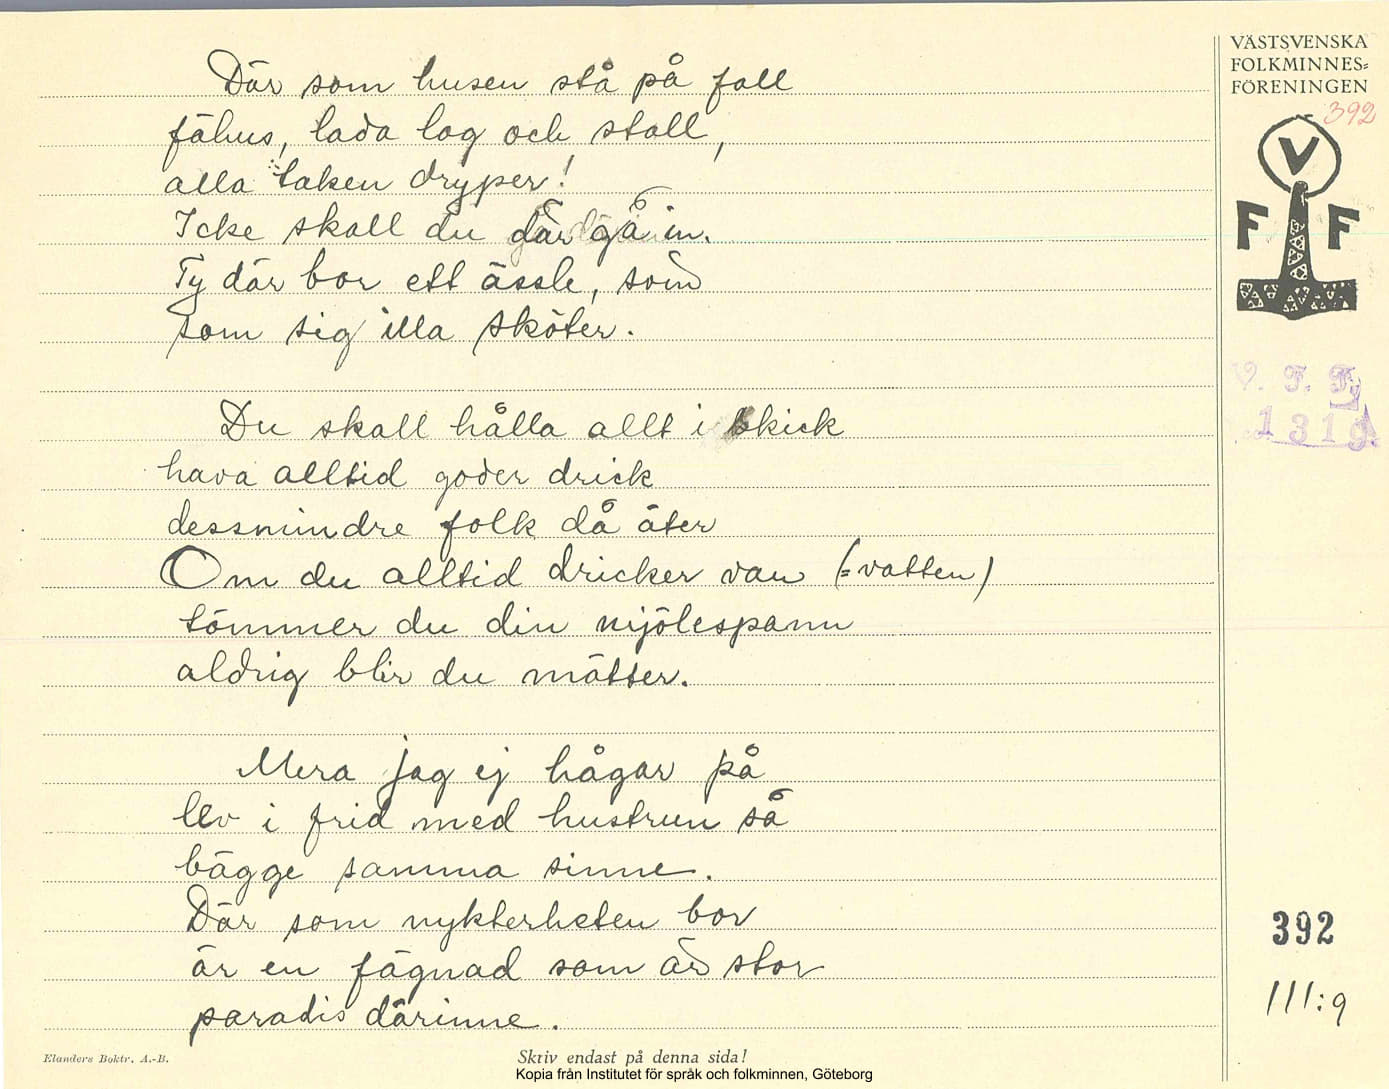 Där som husen stå på fall
fähus, lada log och stall,
alla taken dryper!
Icke skall du där gå in.
Ty där bor ett ässle, som
som sig illa sköter.
Du skall hålla allt i skick
hava alltid goder drick
dessmindre folk då äter
Om du alltid dricker van (=vatten)
tömmer du din mjölespann
aldrig blir du mätter.
Mera jag ej hågar på
lev i frid med hustrun så
bägge samma sinne.
Där som nykterheten bor
är en fägnad som är stor
paradis därinne.
VÄSTSVENSKA
FOLKMINNES=
FÖRENINGEN
392
V
F F
V. F. F.
1319.
392
III:9
Elanders Boktr. A.-B.
Skriv endast på denna sida!
Kopia från Institutet för språk och folkminnen, Göteborg